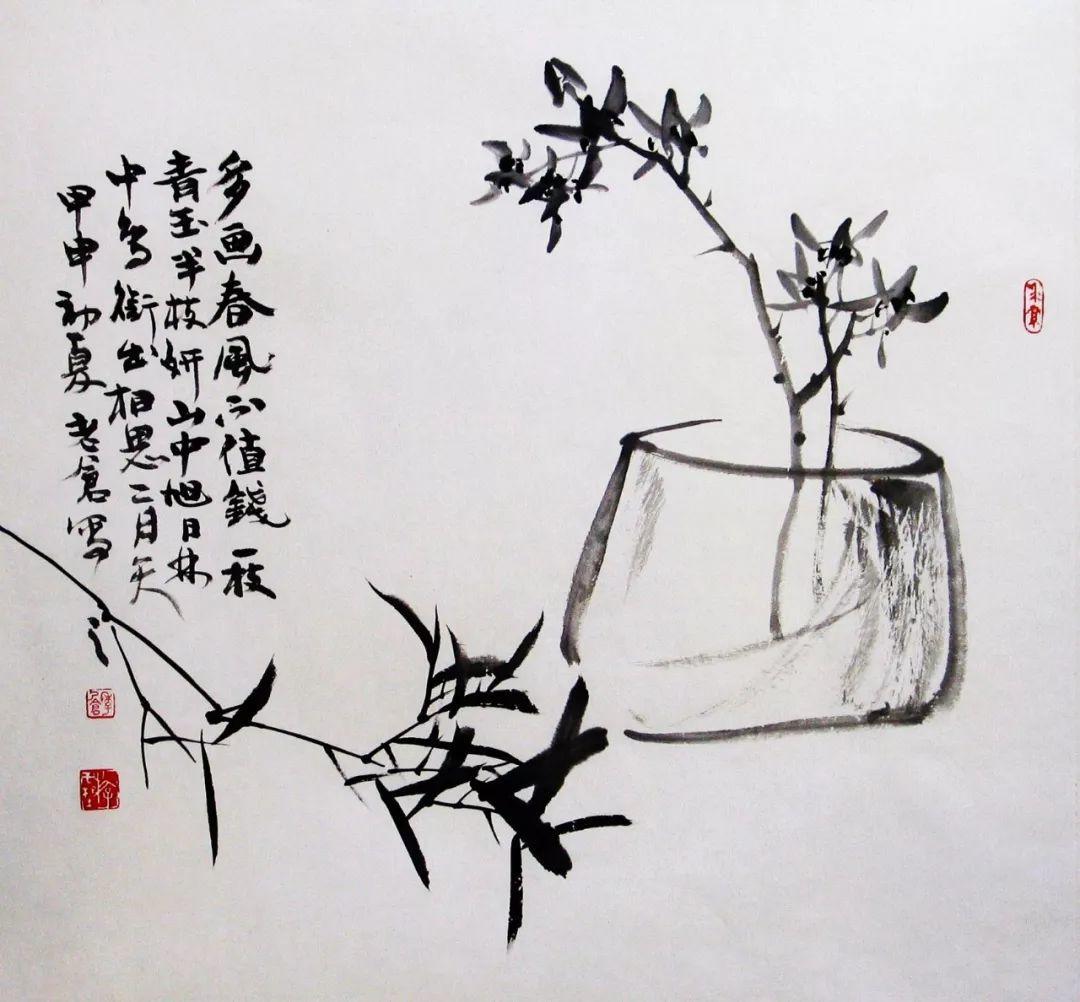 多画春風不值錢一枝
青玉半枝妍山中旭日林
中鳥銜出相思二月天
甲申初夏老倉寫之